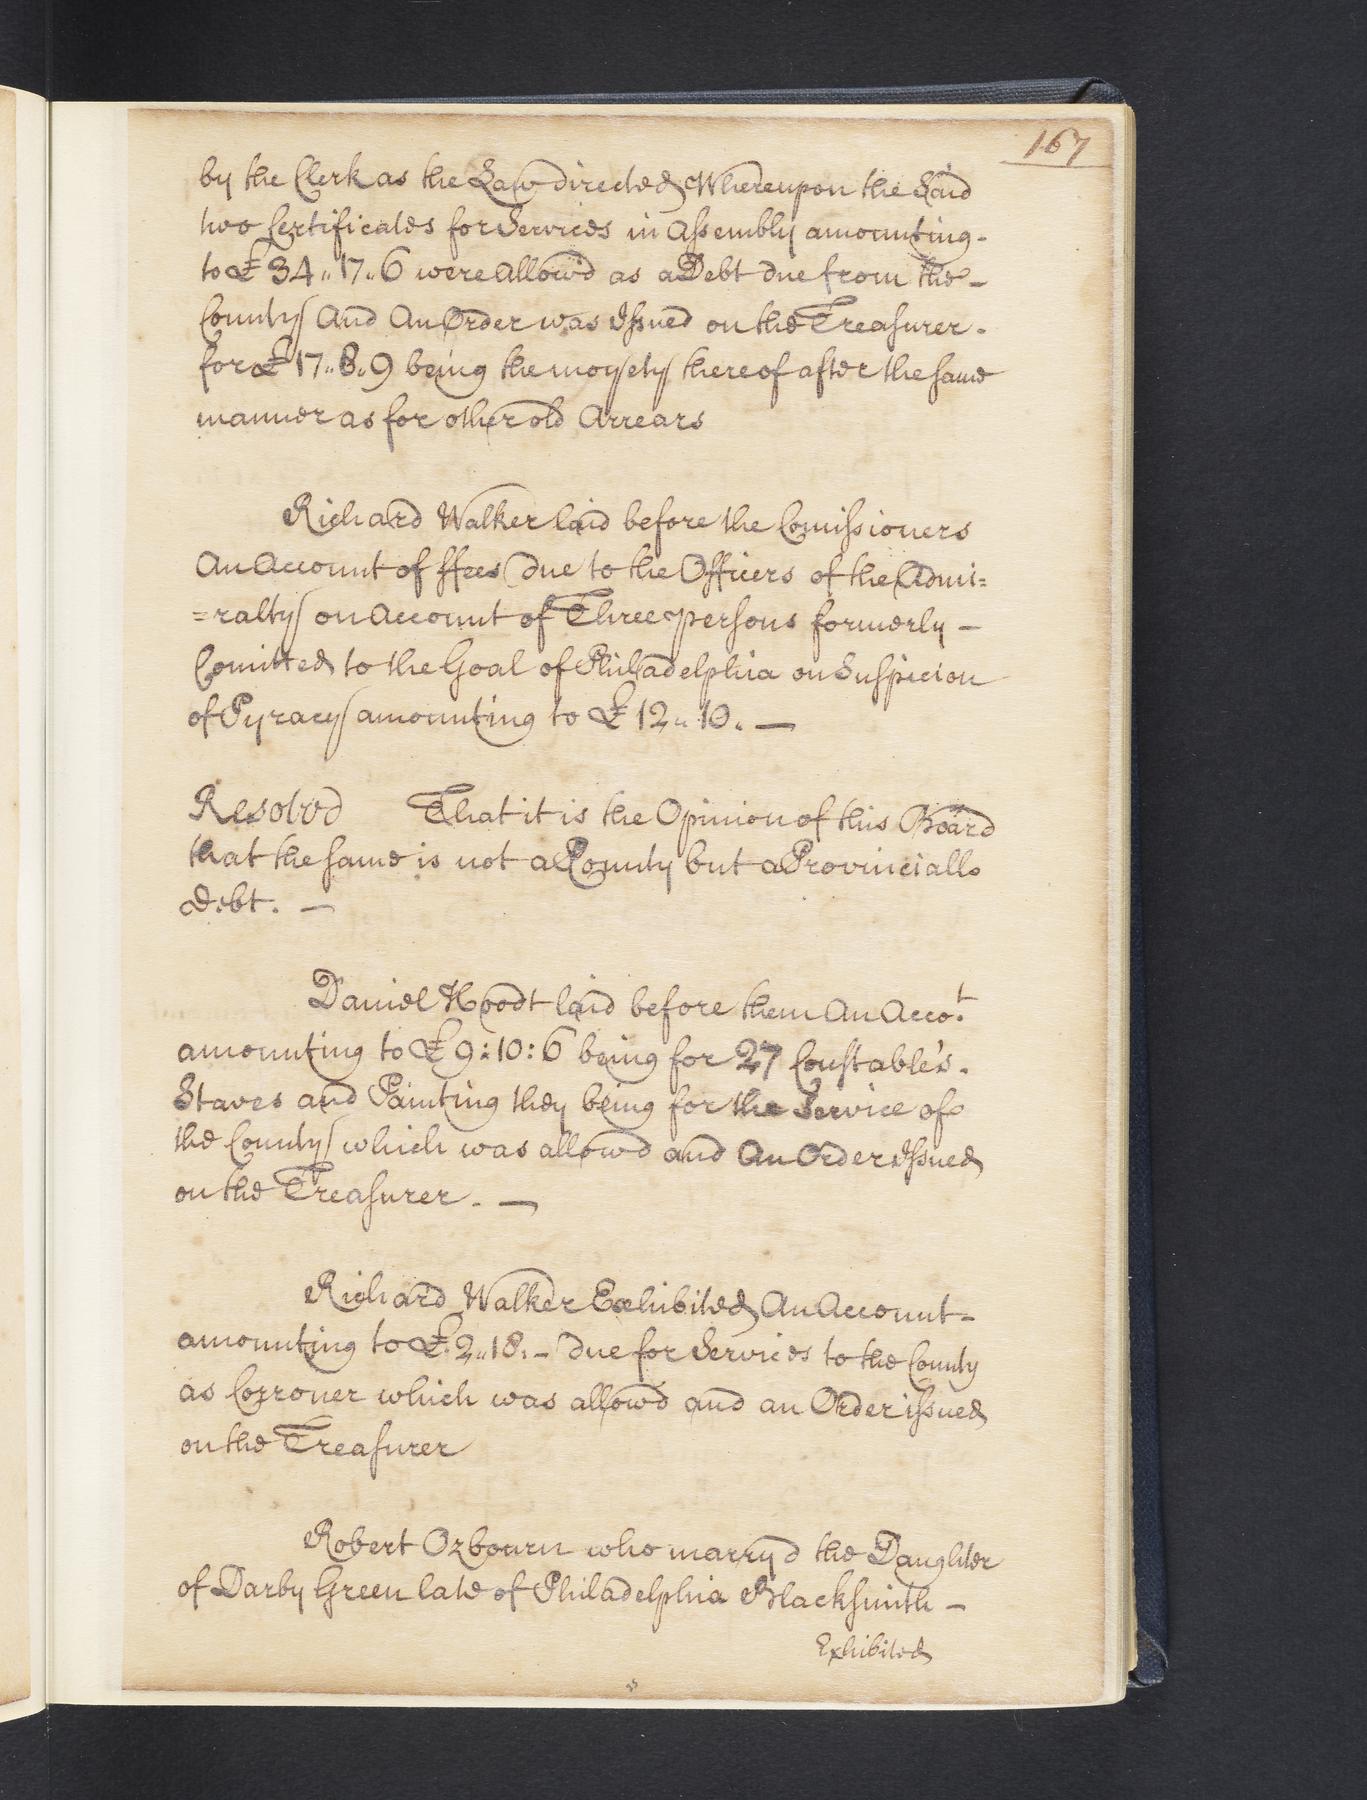 167
by the Clerk as the Law directed Whereupon the Said
two Certificates for Services in Assembly amounting -
to £ 34 ,, 17 ,, 6 were allow'd as a Debt due from the -
County And An Order was Issued on the Treasurer -
for £ 17 ,, 8 ,, 9 being the moyety thereof after the same
manner as for other old Arrears
Richard Walker laid before the Comissioners
An Account of ffees due to the Officers of the Admi=
=ralty on Account of Three persons formerly -
Comitted to the Goal of Philadelphia on Suspicion
of Pyracy amounting to £ 12 ,, 10 ,, —
Resolvd That it is the Opinion of this Board
that the same is not a County but a Provinciall
Debt. —
Daniel Hoodt laid before them An Acco.t
amounting to £ 9 : 10 : 6 being for 27 Constable's -
Staves and Painting they being for the Service of
the County which was allowd and An Order Issued
on the Treasurer . —
Richard Walker Exhibited An Account -
amounting to £ 2 ,, 18 ,, - due for Services to the County
as Corroner which was allowd and an Order issued
on the Treasurer
Robert Ozbourn who marryd the Daughter
of Darby Green late of Philadelphia Blacksmith -
Exhibited